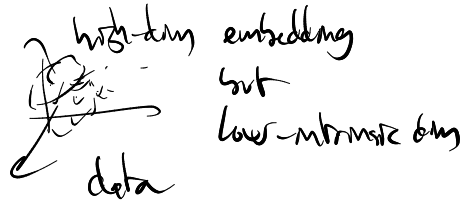 high-dim embedding
but
low-intrinsic dim
data